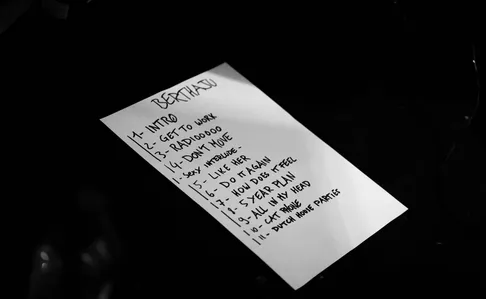 BERTHAJU
1- INTRO
2- GET TO WORK
3- RADIOOOOO
4- DON'T MOVE
- SEXY INTERLUDE -
5- LIKE HER
6- DO IT AGAIN
7- HOW DOES IT FEEL
8- 5 YEAR PLAN
9- ALL IN MY HEAD
10- CAT PHONE
11- DUTCH HOUSE PARTIES